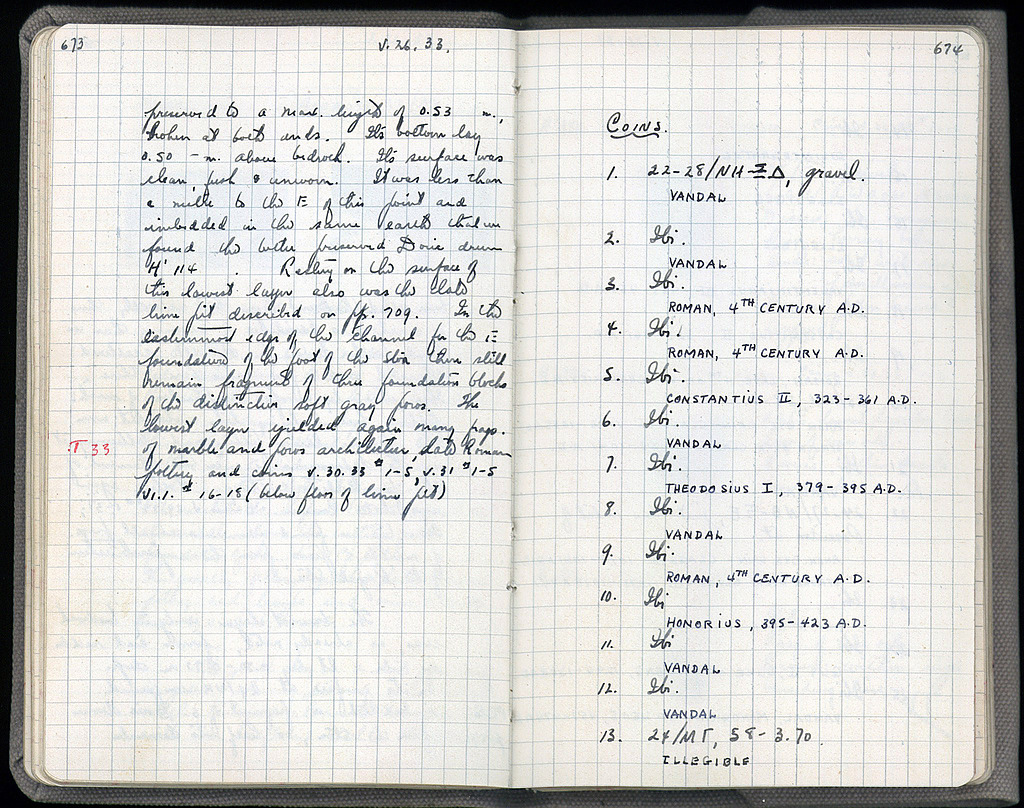 673
V. 26. 33.
preserved to a max. height of 0.53 m.,
broken at both ends. Its bottom lay
0.50 - m. above bedrock. Its surface was
clean, fresh & unworn. It was less than
a metre to the E of this point and
imbedded in the same earth that we
found the better preserved Doric drum
H' 114 . Resting on the surface of
this lowest layer also was the
lime pit described on pp. 709. In the
easternmost edge of the channel for the E
foundation of the foot of the Stoa there still
remain fragments of three foundation blocks
of the distinctive soft gray poros. The
lowest layer yielded again many frags.
of marble and poros architecture, late Roman
T 33
pottery and coins V. 30. 33 # 1-5, V. 31 # 1-5
VI. 1. # 16-18 (below floor of lime pit)
674
COINS.
1. 22-28/ΝΗ-ΞΔ, gravel.
VANDAL
2. Ibi.
VANDAL
3. Ibi.
ROMAN, 4TH CENTURY A.D.
4. Ibi.
ROMAN, 4TH CENTURY A.D.
5. Ibi.
CONSTANTIUS II, 323-361 A.D.
6. Ibi.
VANDAL
7. Ibi.
THEODOSIUS I, 379-395 A.D.
8. Ibi.
VANDAL
9. Ibi.
ROMAN, 4TH CENTURY A.D.
10. Ibi
HONORIUS, 395-423 A.D.
11. Ibi
VANDAL
12. Ibi.
VANDAL
13. 24/ΜΓ, 58-3.70.
ILLEGIBLE